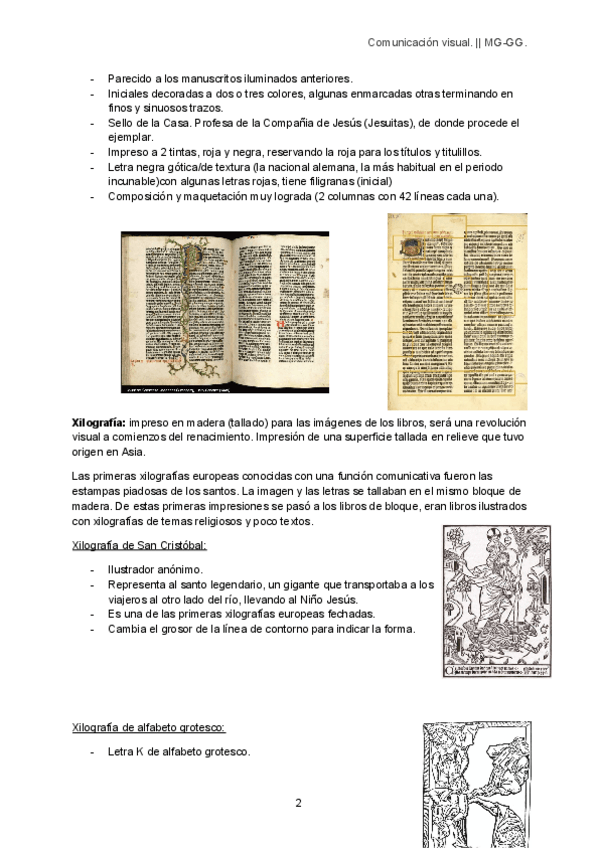 Comunicación visual. || MG-GG.
- Parecido a los manuscritos iluminados anteriores.
- Iniciales decoradas a dos o tres colores, algunas enmarcadas otras terminando en
finos y sinuosos trazos.
- Sello de la Casa. Profesa de la Compañia de Jesús (Jesuitas), de donde procede el
ejemplar.
- Impreso a 2 tintas, roja y negra, reservando la roja para los títulos y titulillos.
- Letra negra gótica/de textura (la nacional alemana, la más habitual en el periodo
incunable)con algunas letras rojas, tiene filigranas (inicial)
- Composición y maquetación muy lograda (2 columnas con 42 líneas cada una).
Xilografía: impreso en madera (tallado) para las imágenes de los libros, será una revolución
visual a comienzos del renacimiento. Impresión de una superficie tallada en relieve que tuvo
origen en Asia.
Las primeras xilografías europeas conocidas con una función comunicativa fueron las
estampas piadosas de los santos. La imagen y las letras se tallaban en el mismo bloque de
madera. De estas primeras impresiones se pasó a los libros de bloque, eran libros ilustrados
con xilografías de temas religiosos y poco textos.
Xilografía de San Cristóbal:
- Ilustrador anónimo.
- Representa al santo legendario, un gigante que transportaba a los
viajeros al otro lado del río, llevando al Niño Jesús.
- Es una de las primeras xilografías europeas fechadas.
- Cambia el grosor de la línea de contorno para indicar la forma.
Xilografía de alfabeto grotesco:
- Letra K de alfabeto grotesco.
2